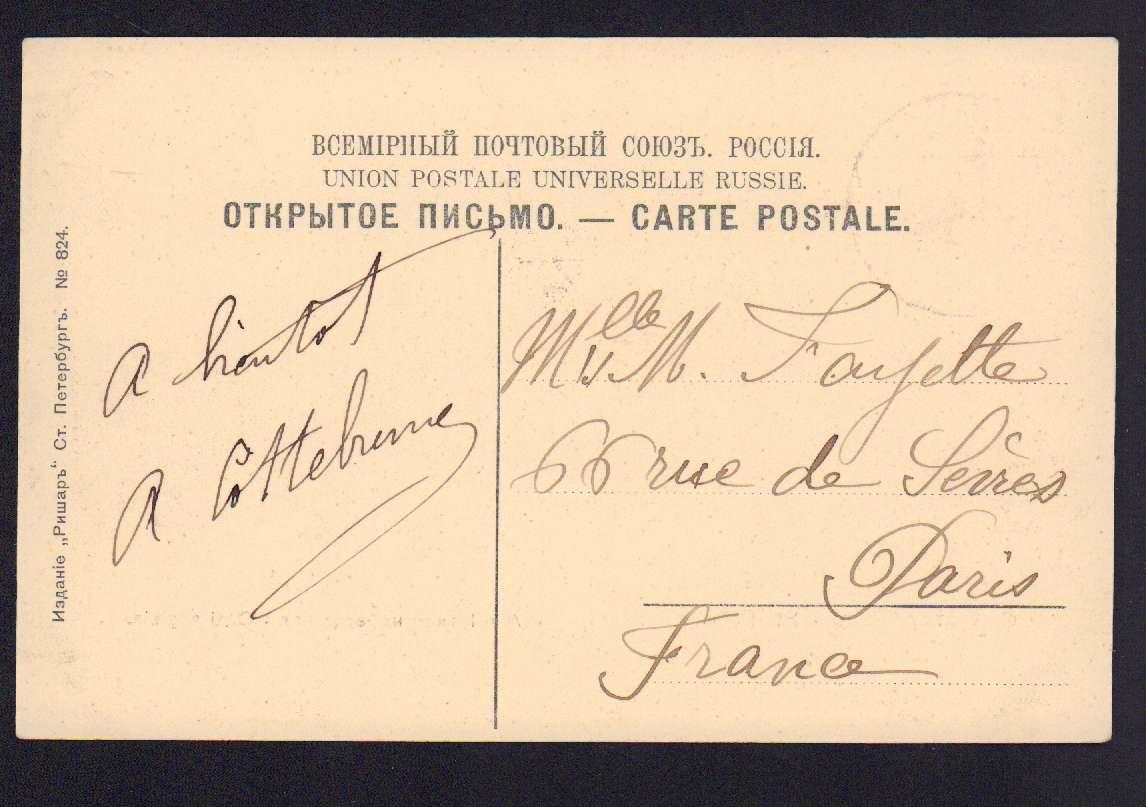 ВСЕМІРНЫЙ ПОЧТОВЫЙ СОЮЗЪ. РОССІЯ.
UNION POSTALE UNIVERSELLE RUSSIE.
ОТКРЫТОЕ ПИСЬМО. — CARTE POSTALE.
Изданіе „Ришаръ“ Ст. Петербургъ. № 824.
A bientot
A Cottebrune
Mlle M. Fayette
66 rue de Sèvres
Paris
France